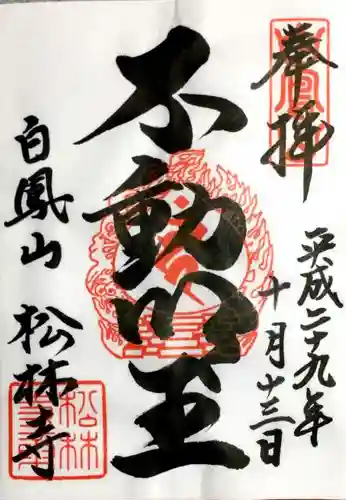 奉拝
平成二十九年
十月廿三日
不動明王
白鳳山
松林寺
白鳳山
松林